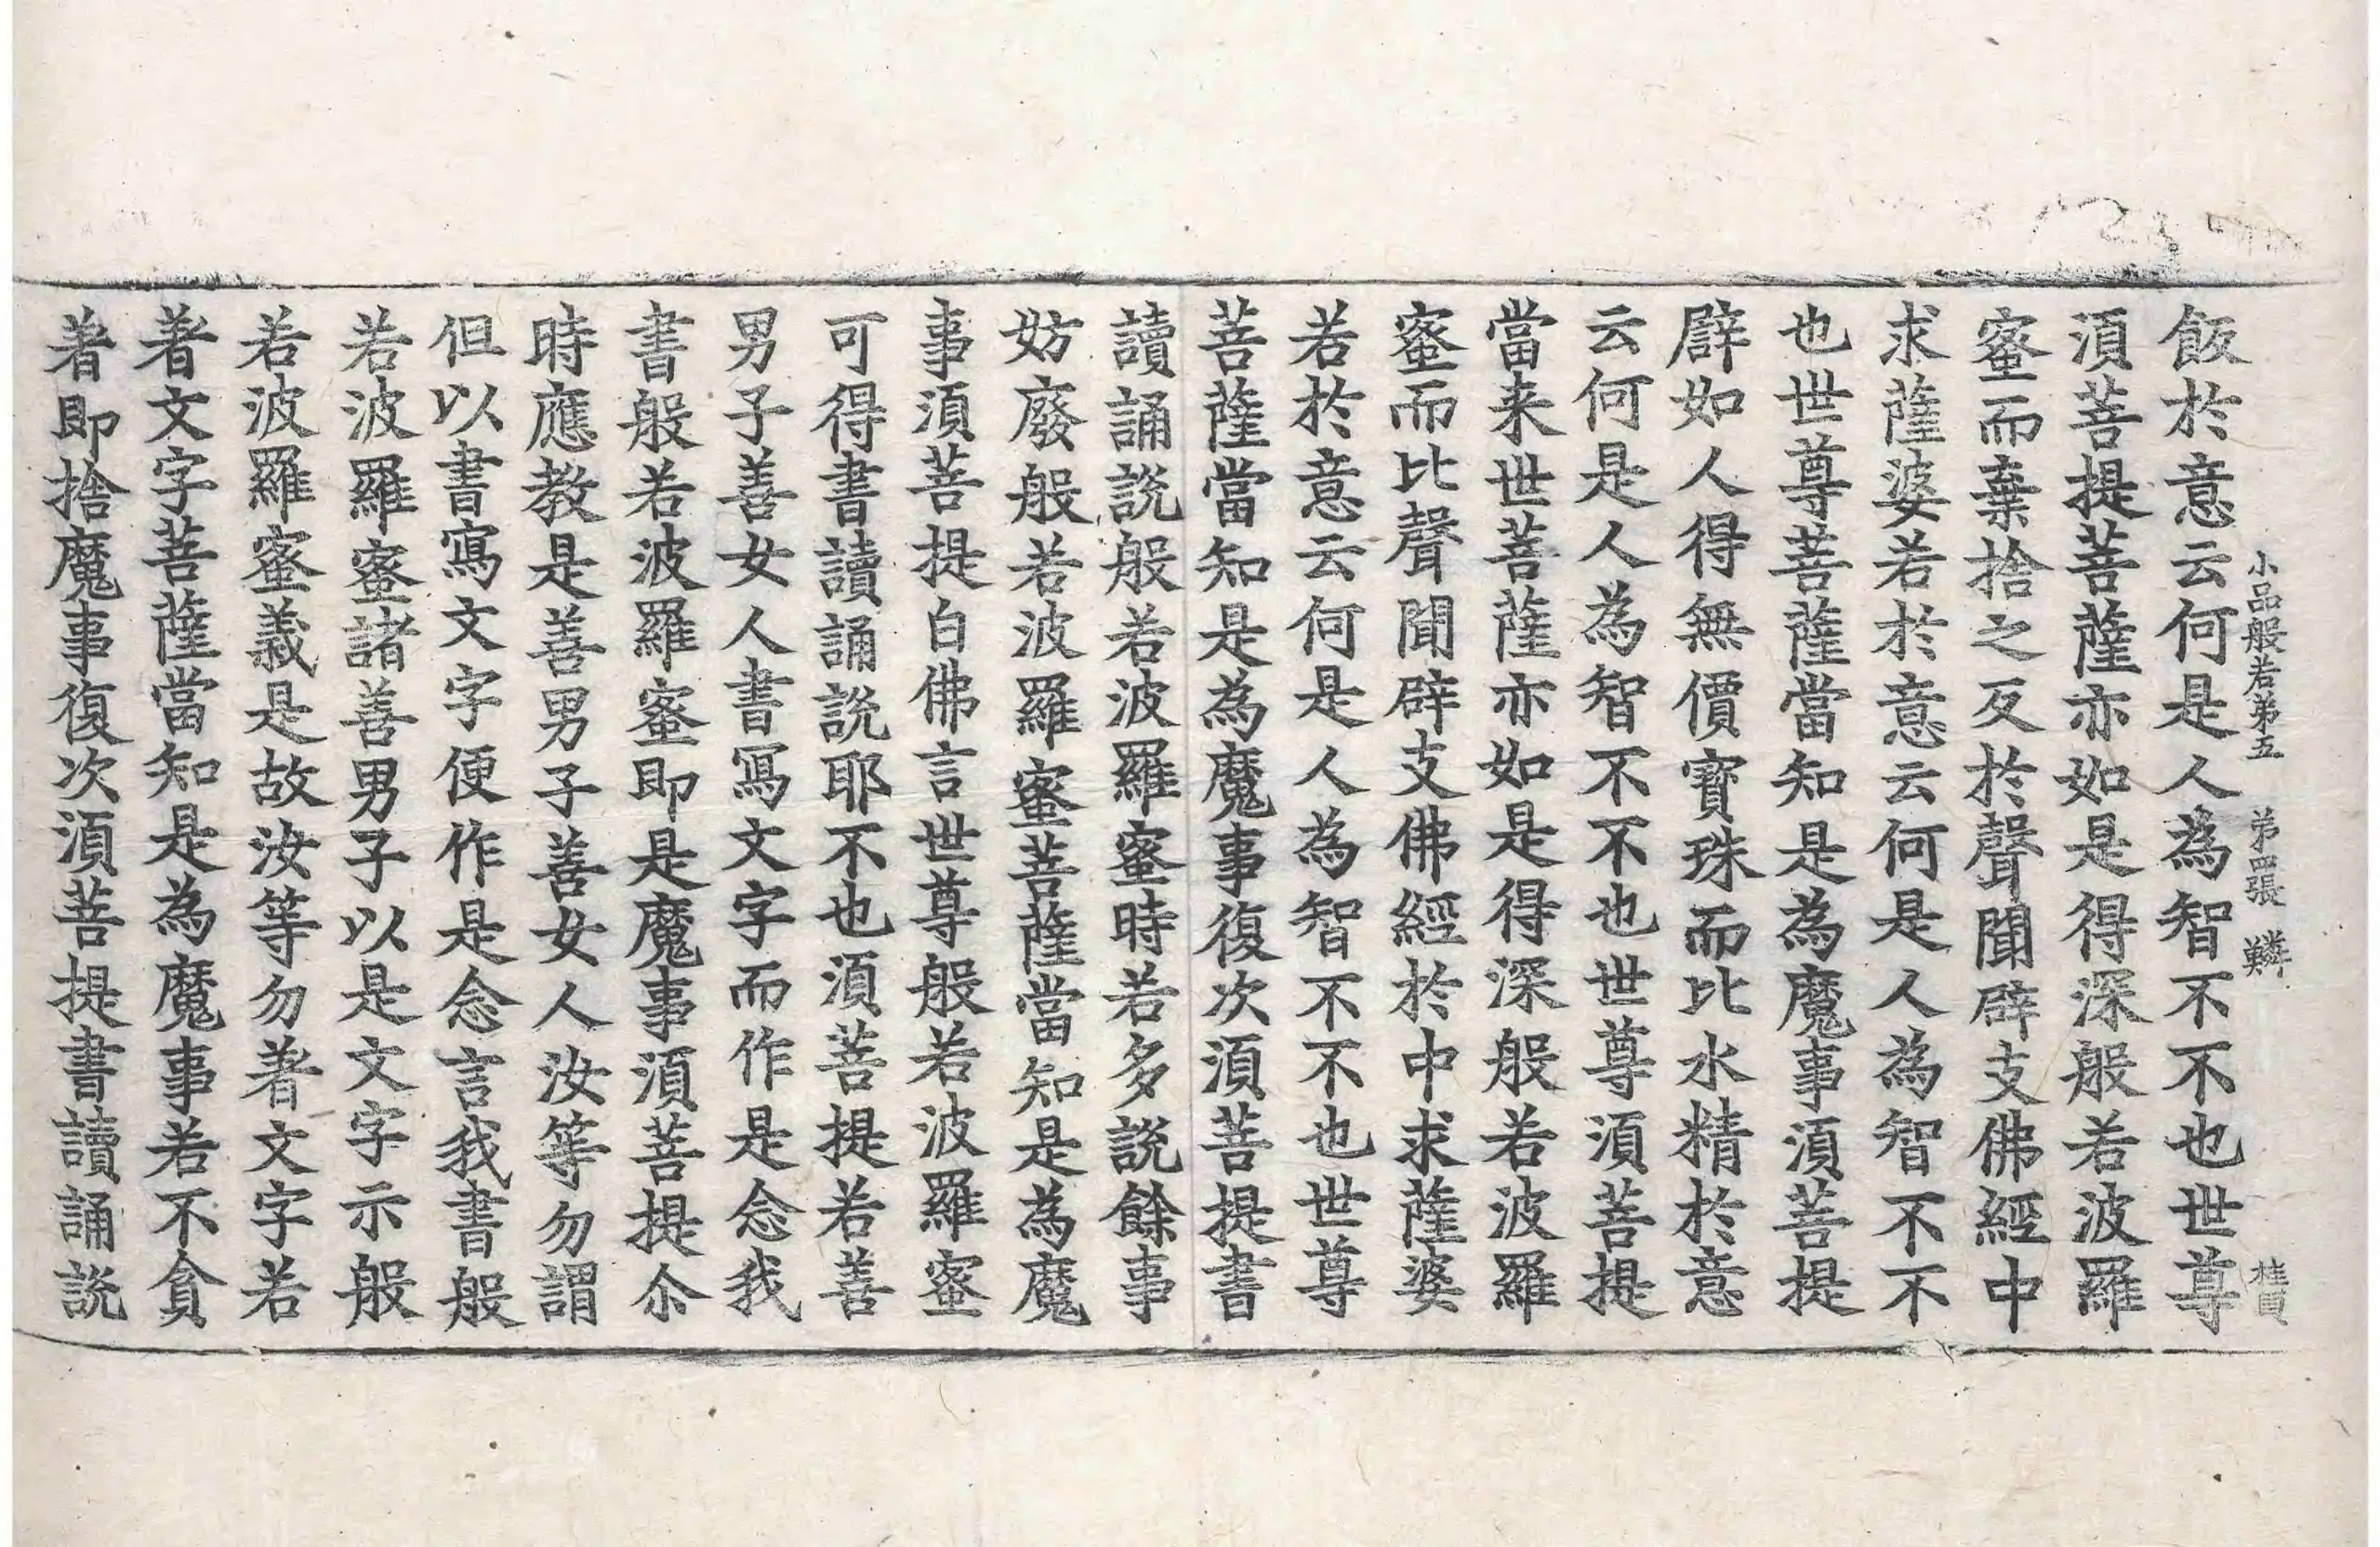 小品般若第五　第四張　鱗　桂員
飯於意云何是人為智不不也世尊
湏菩提菩薩亦如是得深般若波羅
蜜而棄捨之反於聲聞辟支佛經中
求薩婆若於意云何是人為智不不
也世尊菩薩當知是為魔事湏菩提
辟如人得無價寶珠而比水精於意
云何是人為智不不也世尊湏菩提
當来世菩薩亦如是得深般若波羅
蜜而比聲聞辟支佛經於中求薩婆
若於意云何是人為智不不也世尊
菩薩當知是為魔事復次湏菩提書
讀誦說般若波羅蜜時若多說餘事
妨廢般若波羅蜜菩薩當知是為魔
事湏菩提白佛言世尊般若波羅蜜
可得書讀誦說耶不也湏菩提若善
男子善女人書寫文字而作是念我
書般若波羅蜜即是魔事湏菩提尒
時應教是善男子善女人汝等勿謂
但以書寫文字便作是念言我書般
若波羅蜜諸善男子以是文字示般
若波羅蜜義是故汝等勿著文字若
著文字菩薩當知是為魔事若不貪
著即捨魔事復次湏菩提書讀誦說